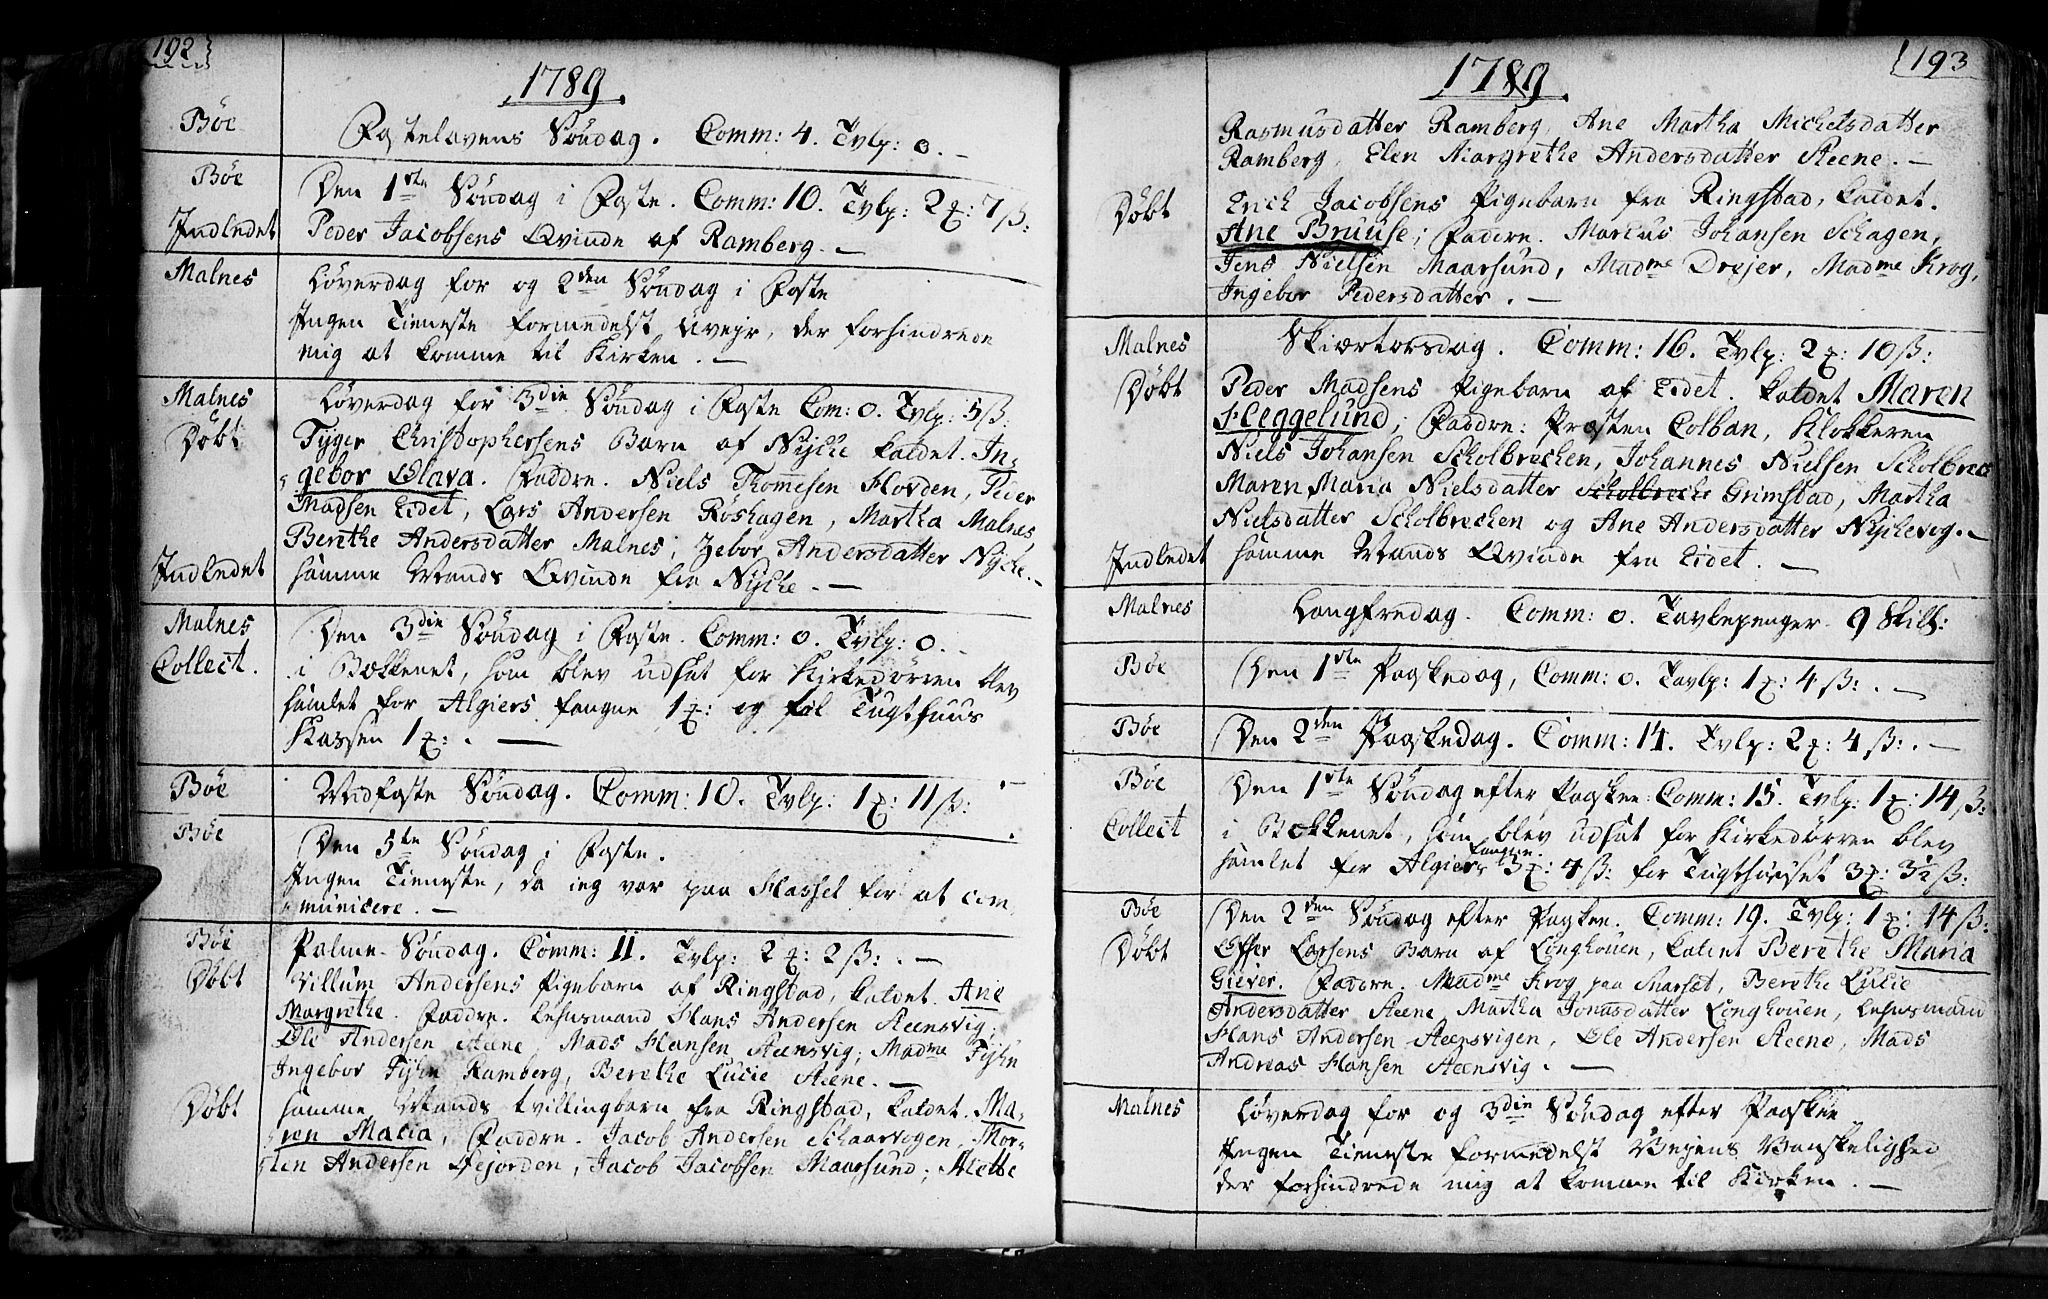 192
1789.
Bøe
Fastelavens Søndag. Comm: 4. Tvlp: 0. -
Bøe
Den 1ste Søndag i Faste. Comm: 10. Tvlp: 2 ꝛ: 7 ß:
Indledet
Peder Jacobsens Qvinde af Ramberg. -
Malnes
Løverdag for og 2den Søndag i Faste
Ingen Tieneste formedelst Uvejr, der forhindrede
mig at komme til Kirken. -
Malnes
Løverdag for 3die Søndag i Faste Com: 0. Tvlp: 5 ß:
Døbt
Tyger Christophersens Barn af Nyche kaldet. In-
gebor Olava. Faddre. Niels Thomesen Hovden, Peder
Madsen Eidet, Lars Andersen Røshagen, Martha Malnes
Berethe Andersdatter Malnes, Zebor Andersdatter Nyche. -
Indledet
samme Mands Qvinde fra Nyche. -
Malnes
Den 3die Søndag i Faste. Comm: 0. Tvlp: 0.
Collect.
i Bækkenet, som blev udsat for Kirkedørren blev
samlet for Algiers fangne 1 ꝛ: og til Tugthuus
Kassen 1 ꝛ: . -
Bøe
Midfaste Søndag. Comm: 10. Tvlp: 1 ꝛ: 11 ß: . -
Bøe
Den 5te Søndag i Faste.
Ingen Tieneste, da ieg var paa Hassel for at com
municere. -
Bøe
Palme-Søndag. Comm: 11. Tvlp: 2 ꝛ: 2 ß: . -
Døbt
Villum Andersens Pigebarn af Ringstad, kaldet. Ane
Margrethe. Faddre. Lehnsmand Hans Andersen Steensvig,
Ole Andersen Steene, Mads Hansen Steensvig, Madme Tyhn
Ingebor Tyhn Ramberg, Berethe Lucie Steene. -
Døbt
samme Mands tvillingbarn fra Ringstad, kaldet. Ma-
ren Maria, Faddre. Jacob Andersen Schaarvogen, Mor-
ten Andersen Føjorden, Jacob Jacobsen Maarsund, Alette
193
1789.
Rasmusdatter Ramberg, Ane Martha Michelsdatter
Ramberg, Elen Margrethe Andersdatter Steene. -
Døbt
Erich Jacobsens Pigebarn fra Ringstad, kaldet.
Ane Bruuse, Faddre. Marcus Johansen Schagen,
Jens Nielsen Maarsund, Madme Drejer, Madme Krog,
Ingebor Pedersdatter. -
Malnes
Skiærtorsdag. Comm: 16. Tvlp: 2 ꝛ: 10 ß:
Døbt
Peder Madsens Pigebarn af Eidet. kaldet Maren
Heggelund; Faddre: Præsten Colban, Klokkeren
Niels Johansen Scholbrechen, Johannes Nielsen Scholbrec
Maren Maria Nielsdatter Scholbreche Grimstad, Martha
Nielsdatter Scholbrechen og Ane Andersdatter Nychevog. -
Indledet
samme Mands Qvinde fra Eidet. -
Malnes
Langfredag. Comm: 0. Tavlepenger. 9 Skill:
Bøe
Den 1ste Paaskedag, Comm: 0. Tavlp: 1 ꝛ: 4 ß: . -
Bøe
Den 2den Paaskedag. Comm: 14. Tvlp: 2 ꝛ: 4 ß: . -
Bøe
Den 1ste Søndag efter Paaske: Comm: 15. Tvlp: 1 ꝛ: 14 ß:
Collect
i Bækkenet, som blev udsat for Kirkedørren blev
samlet for Algiers fangne. 3 ꝛ: 4 ß: for Tugthuuset 3 ꝛ: 3½ ß:
Bøe
Den 2den Søndag efter Paasken. Comm: 19. Tvlp: 1 ꝛ: 14 ß:
Døbt
Offer Larsens Barn af Longhouen, kaldet Berethe Maria
Giever. Faddre. Madme Krog paa Marset, Berethe Lucie
Andersdatter Steene, Martha Jonasdatter Longhouen, Lehnsmand
Hans Andersen Steensvigen, Ole Andersen Steene, Mads
Andreas Hansen Steensvig. -
Malnes
Løverdag for og 3die Søndag efter Paaske
Ingen Tieneste formedelst Vejens Vanskelighed
der forhindrede mig at komme til Kirken. -